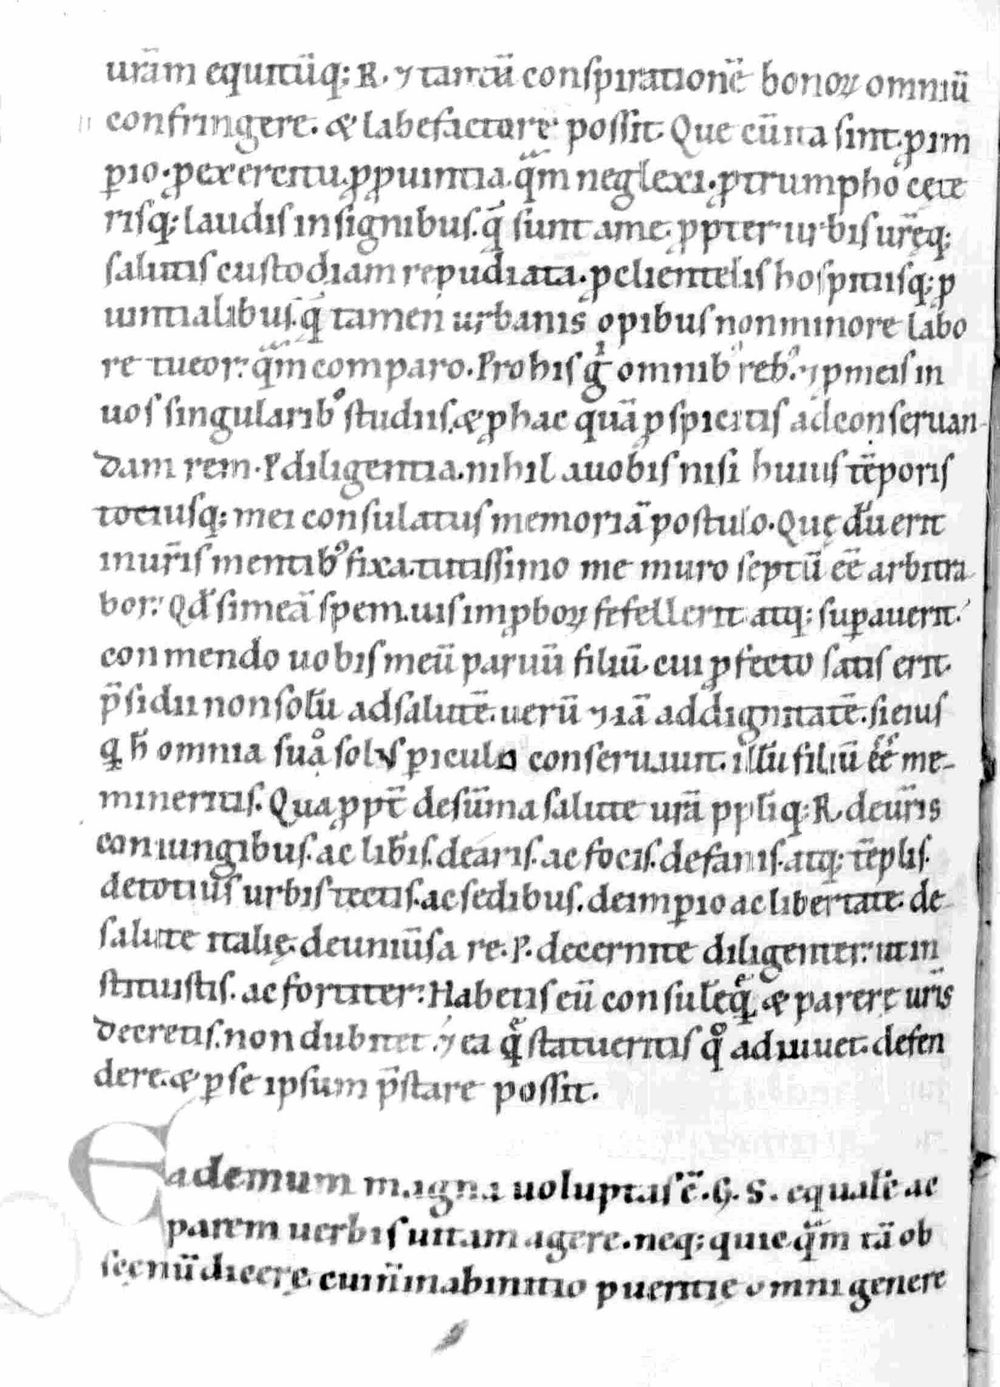 urãm equitũq; R. ⁊ tantũ conspirationẽ bonoꝝ omniũ
confringere. & labefactare possit. Que cũ ita sint. ꝓ im
ꝑio. ꝓ exercitu. ꝓ ꝓuintia. q̃m neglexi. ꝓ triumpho cęte
risq; laudis insignibus. q̃ sunt ame. ꝓpter urbis urẽq;
salutis custodiam repudiata. ꝓ clientelis hospitiisq; ꝓ
uintialibus. q̃ tamen urbanis opibus non minore labo
re tueor: q̃m comparo. Pro his gͥ omnibꝰ rebꝰ. ⁊ p meis in
uos singularibꝰ studiis. & ꝓ hac quã ꝑspicitis ad conseruan
dam rem. P. diligentia. nihil auobis nisi huius tẽporis
totiusq; mei consulatus memoriã postulo. Quę dũ erit
in ur̃is mentibꝰ fixa. tutissimo me muro septũ eẽ arbitra
bor: Qđ si meã spem. uis imꝓboꝝ fefellerit atq; suꝑauerit.
conmendo uobis meũ paruũ filiũ. cui ꝓfecto satis erit
p̃sidii non solũ ad salutẽ. uerũ ⁊ iã ad dignitatẽ. si eius
q ħ omnia suo solus ꝑiculo conseruauit. illũ filiũ eẽ me-
mineritis. Quaꝓpt̃ de sũma salute urã pplĩq; R. de ur̃is
coniungibus. ac lib̃is. de aris. ac focis. de fanis. atq; tẽplis.
de totius urbis tectis. ac sedibus. de imꝑio ac libertate. de
salute italię. de uniũsa re. P. decernite diligenter: ut in
stituistis. ac fortiter: Habetis eũ consulẽ q̃ & parere uris
decretis. non dubitet. ⁊ ea q̃ statueritis qͦ adiuuet. defen
dere. & ꝑ se ipsum p̃stare possit.
Ea demum magna uoluptas ẽ. G. S. equalẽ ac
parem uerbis uitam agere. neq; quic q̃m tã ob
sęcnũ dicere. cui ñ in ab initio pueritię omni genere